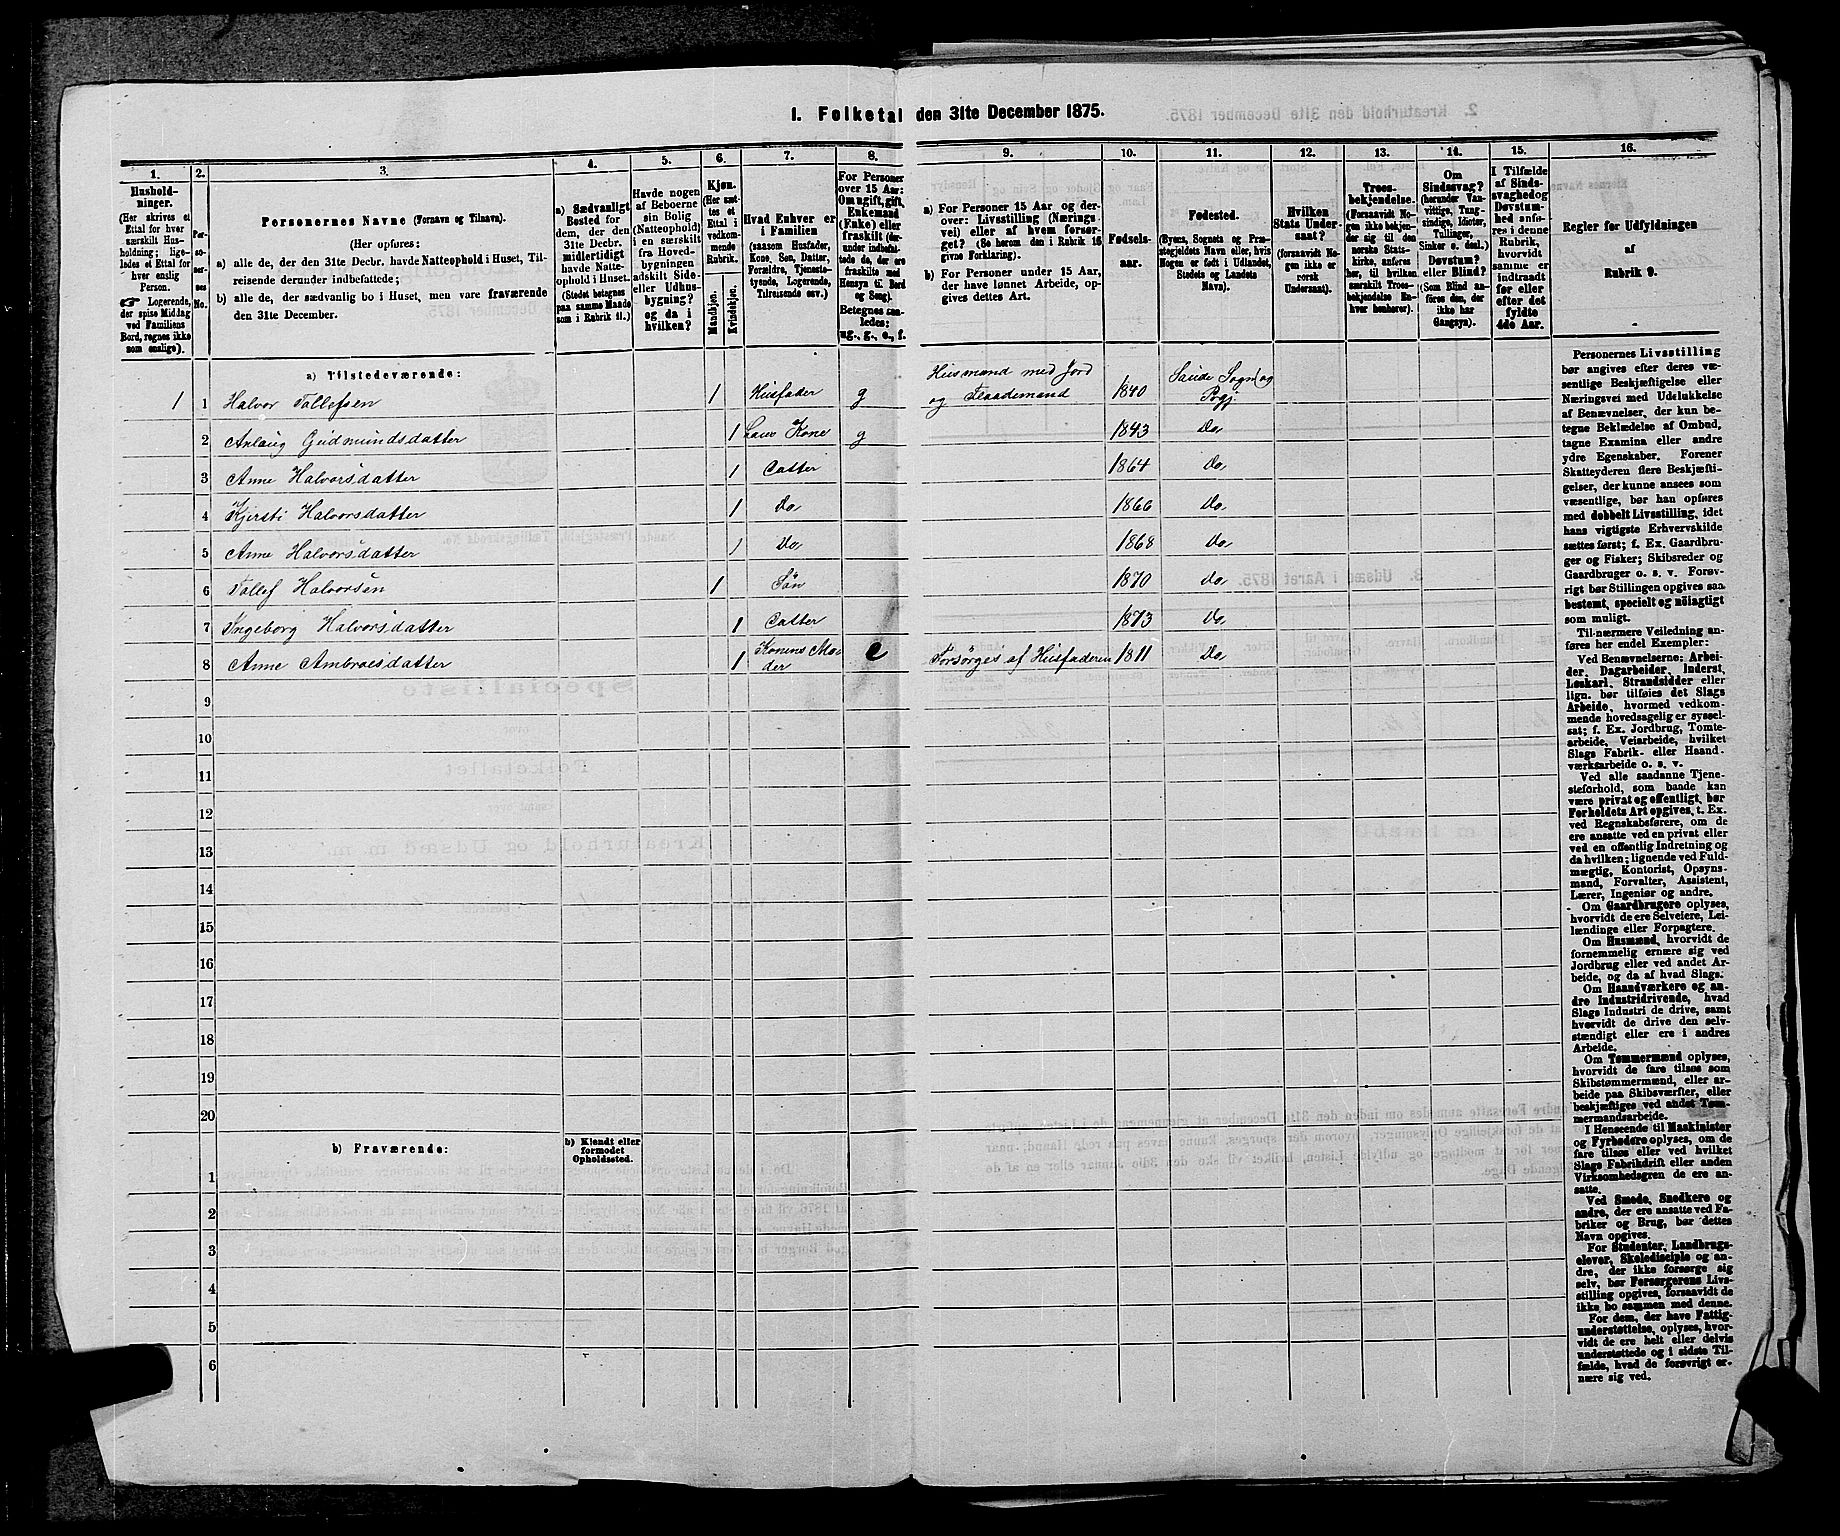 1. Folketal den 31te December 1875.
1. 2. 3. 4. 5. 6. 7. 8. 9. 10. 11. 12. 13. 14. 15. 16.
Hushold-
ninger.
(Her skrives et
Ettal for hver
særskilt Hus-
holdning; lige-
ledes et Ettal for
hver enslig
Person.
☞ Logerende,
der spise Middag
ved Familiens
Bord, regnes ikke
som enslige).
Per-
so-
ner-
nes
No.
Personernes Navne (Fornavn og Tilnavn).
(Her opføres:
a) alle de, der den 31te Decbr. havde Natteophold i Huset, Til-
reisende derunder indbefattede;
b) alle de, der sædvanlig bo i Huset, men vare fraværende
den 31te December.
a) Sædvanligt
Bosted for
dem, der den
31te Decbr.
midlertidigt
havde Natte-
ophold i Huset.
(Stedet betegnes
paa samme Maade
som i Rubrik 11.)
Havde nogen
af Beboerne
sin Bolig
(Natteophold)
i en særskilt
fra Hoved-
bygningen
adskilt Side-
eller Udhus-
bygning?
og da i
hvilken?
Kjøn.
(Her sæt-
tes et
Ettal i
vedkom-
mende
Rubrik.
Mandkjøn.
Kvindekjøn.
Hvad Enhver er
i Familien
(saasom Husfader,
Kone, Søn, Datter,
Forældre, Tjeneste-
tyende, Logerende,
Tilreisende osv.)
For Personer
over 15 Aar:
Om ugift, gift,
Enkemand
(Enke) eller
fraskilt (der-
under indbefat-
tede de, der ere
fraskilte med
Hensyn til Bord
og Seng).
Betegnes saa-
ledes:
ug., g., e., f.
a) For Personer 15 Aar og der-
over: Livsstilling (Nærings-
vei) eller af hvem forsør-
get? (Se herom den i Rubrik 16
givne Forklaring).
b) For Personer under 15 Aar,
der have lønnet Arbeide, op-
gives dettes Art.
Fødsels-
aar.
Fødested.
(Byens, Sognets og Præ-
stegjeldets Navn eller, hvis
Nogen er født i Udlandet,
Stedets og Landets
Navn).
Hvilken
Stats Under-
saat?
(forsaavidt No-
gen ikke er
norsk
Undersaat).
Troes-
bekjendelse.
(Forsaavidt No-
gen ikke bekjen-
der sig til den
norske Stats-
kirke, anføres
her, til hvilken
særskilt Troes-
bekjendelse En-
hver henhører).
Om
Sindssvag?
(herunder Van-
vittige, Tung-
sindige, Idioter,
Tullinger,
Sinker o. desl.)
Døvstum?
eller Blind?
(Som Blind an-
føres den, der
ikke har
Gangsyn).
I Tilfælde
af Sinds-
svaghed og
Døvstum-
hed anfø-
res i denne
Rubrik,
hvorvidt
samme er
indtraadt
før eller
efter det
fyldte
4de Aar.
Regler for Udfyldningen
af
Rubrik 9.
a) Tilstedeværende:
1 1 Halvor Tollefsen 1 Husfader g Husmand med Jord og Flaademand 1840 Saude Sogn og Prgj.
2 Anlaug Gudmundsdatter 1 hans Kone g 1843 Do
3 Anne Halvorsdatter 1 Datter 1864 Do
4 Kjersti Halvorsdatter 1 Do 1866 Do
5 Anne Halvorsdatter 1 Do 1868 Do
6 Tollef Halvorsen 1 Søn 1870 Do
7 Ingeborg Halvorsdatter 1 Datter 1873 Do
8 Anne Ambroesdatter 1 Konens Moder e Forsørges af Husfaderen 1811 Do
9
10
11
12
13
14
15
16
17
18
19
20
b) Fraværende:
b) Kjendt eller
formodet
Opholdssted.
1
2
3
4
5
6
Personernes Livsstilling
bør angives efter deres væ-
sentlige Beskjæftigelse eller
Næringsvei med Udelukkelse
af Benævnelser, der kun be-
tegne Beklædelse af Ombud,
tagne Examina eller andre
ydre Egenskaber. Forener
Skatteyderen flere Beskjæfti-
gelser, der kunne ansees som
væsentlige, bør han opføres
med dobbelt Livsstilling, idet
hans vigtigste Erhvervskilde
sættes først; f. Ex. Gaardbru-
ger og Fisker; Skibsreder og
Gaardbruger o. s. v. Forøv-
rigt bør Stillingen opgives saa
bestemt, specielt og nöiagtigt
som muligt.
Til nærmere Veiledning an-
føres her endel Exempler:
Ved Benævnelserne: Arbei-
der, Dagarbeider, Inderst,
Løskarl, Strandsidder eller
lign. bør tilføies det Slags
Arbeide, hvormed vedkom-
mende hovedsagelig er syssel-
sat; f. Ex. Jordbrug, Tomte-
arbeide, Veiarbeide, hvilket
Slags Fabrik- eller Haand-
værksarbeide o. s. v.
Ved alle saadanne Tjene-
steforhold, som baade kan
være privat og offentligt, bør
Forholdets Art opgives, t. Ex.
ved Regnskabsførere, om de
ere ansatte ved en privat eller
ved en offentlig Indretning og
da hvilken; lignende ved Fuld-
mægtig, Kontorist, Opsyns-
mand, Forvalter, Assistent,
Lærer, Ingeniør og andre.
Om Gaardbrugere oplyses,
hvorvidt de ere Selveiere, Lei-
lændinge eller Forpagtere.
Om Husmænd, hvorvidt de
fornemmelig ernære sig ved
Jordbrug eller ved andet Ar-
beide, og da af hvad Slags.
Om Haandværkere og an-
dre Industridrivende, hvad
Slags Industri de drive, samt
hvorvidt de drive den selv-
stændigt eller ere i andres
Arbeide.
Om Tømmermænd oplyses,
hvorvidt de fare tilsøs som
Skibstømmermænd, eller ar-
beide paa Skibsværfter, eller
beskjæftiges ved andet Tøm-
mermandsarbeide.
I Henseende til Maskinister
og Fyrbødere oplyses, om de
fare tilsøs eller ved hvilket
Slags Fabrikdrift eller anden
Virksomhedsgren de ere an-
satte.
Ved Smede, Snedkere og
andre, der ere ansatte ved Fa-
briker og Brug, bør dettes
Navn opgives.
For Studenter, Landbrugs-
elever, Skoledisciple og an-
dre, der ikke forsørge sig
selv, bør Forsørgerens Livs-
stilling opgives, forsaavidt de
ikke bo sammen med denne.
For dem, der have Fattig-
understøttelse, oplyses, hvor-
vidt de ere helt eller delvis
understøttede og i sidste Til-
fælde, hvad de forøvrigt er-
nære sig ved.